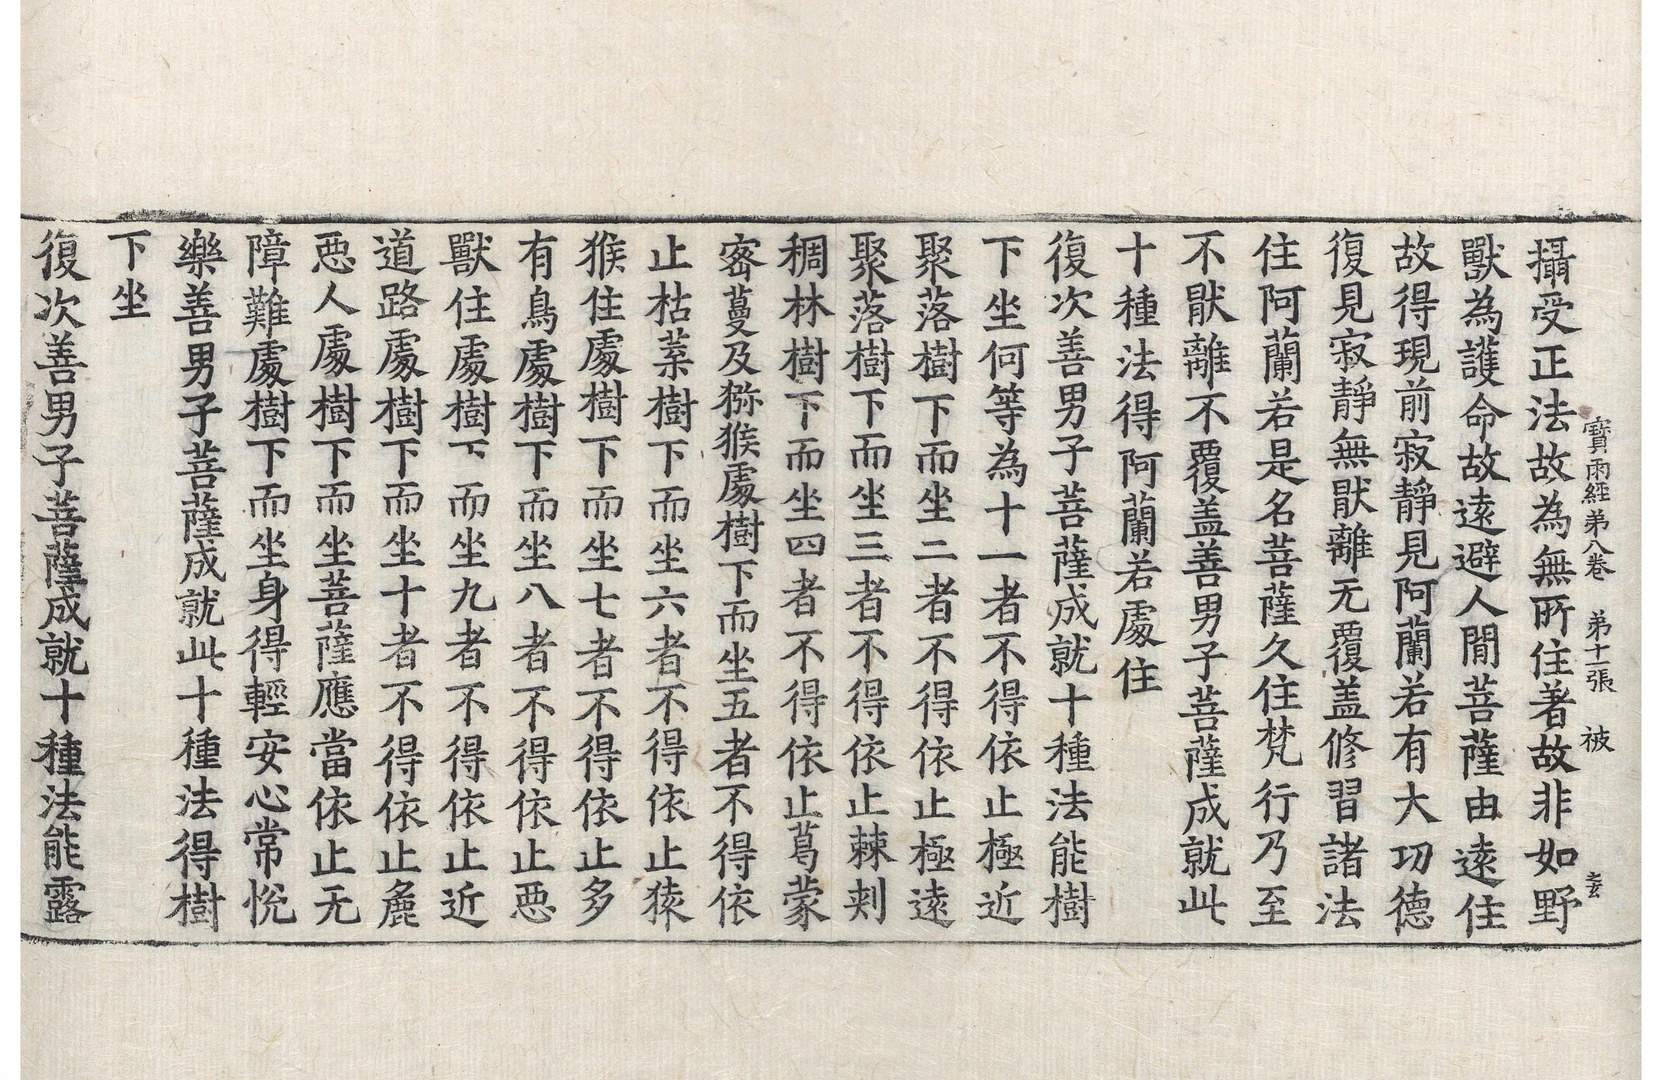 寶雨經弟八卷　弟十一張　被
攝受正法故為無所住著故非如野
獸為護命故遠避人間菩薩由遠住
故得現前寂靜見阿蘭若有大功德
復見寂靜無猒離无覆盖修習諸法
住阿蘭若是名菩薩久住梵行乃至
不猒離不覆盖善男子菩薩成就此
十種法得阿蘭若處住
復次善男子菩薩成就十種法能樹
下坐何等為十一者不得依止極近
聚落樹下而坐二者不得依止極遠
聚落樹下而坐三者不得依止棘刺
稠林樹下而坐四者不得依止葛蒙
密蔓及猕猴處樹下而坐五者不得依
止枯葉樹下而坐六者不得依止猿
猴住處樹下而坐七者不得依止多
有鳥處樹下而坐八者不得依止惡
獸住處樹下而坐九者不得依止近
道路處樹下而坐十者不得依止麁
惡人處樹下而坐菩薩應當依止无
障難處樹下而坐身得輕安心常悅
樂善男子菩薩成就此十種法得樹
下坐
復次善男子菩薩成就十種法能露